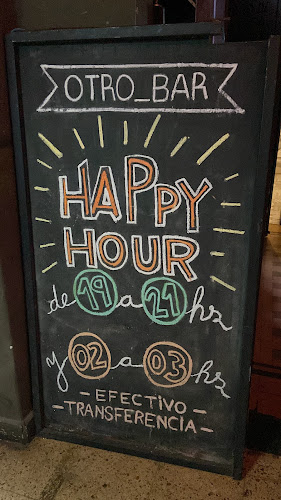 OTRO_BAR
HAPPY
HOUR
de 19 a 21 hs
y 02 a 03 hs
- EFECTIVO -
- TRANSFERENCIA -